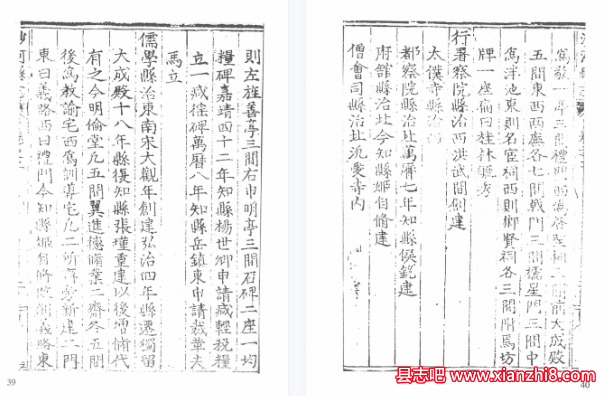 則左旌善亭三間右申明亭三間石碑二座一均
糧碑嘉靖四十二年知縣楊世卿申請減輕稅糧
立一減徭碑萬曆八年知縣岳鎮東申請裁革夫
馬立
儒學縣治東南宋大觀年創建弘治四年縣遷獨留
大成殿十八年縣復知縣張瑾重建以後增脩代
有之今明倫堂凡五間翼進德脩業二齋各五間
後為教諭宅西為訓導宅凡二所新建二門
東曰義路西曰禮門今知縣姬自脩創義路東
39
為敬一亭三間禮門西為啓聖祠三間前大成殿
五間東西兩廡各七間戟門三間櫺星門三間中
為泮池東則名宦祠西則鄉賢祠各三間附馬坊
牌一座
行署察院縣治西洪武間創建
太僕寺縣治
都察院縣治北萬曆七年知縣侯鉞建
府館縣治北今知縣姬自脩建
僧會司縣治北寺內
40
县志吧
www.xianzhi8.com